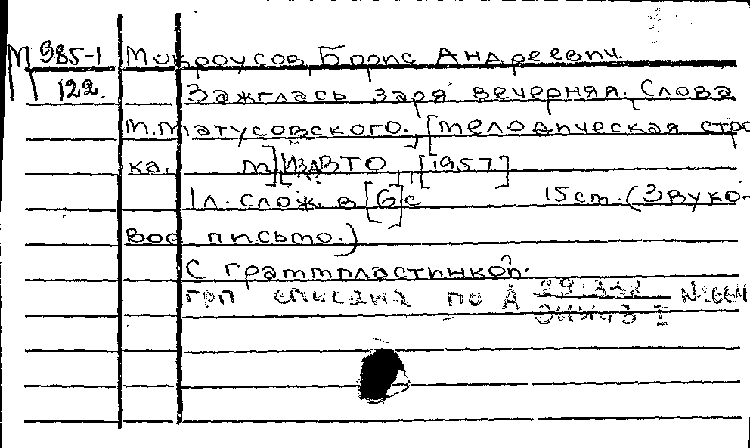 М 985-1 Мокроусов, Борис Андреевич.
122. Зажглась заря вечерняя. Слова
М. Матусовского. [Мелодическая стро
ка. М] [Изд ВТО, [1957]
1 л. слож. в [6] с 15 см. (Звуко-
вое письмо.)
С грампластинкой.
грп списана по А